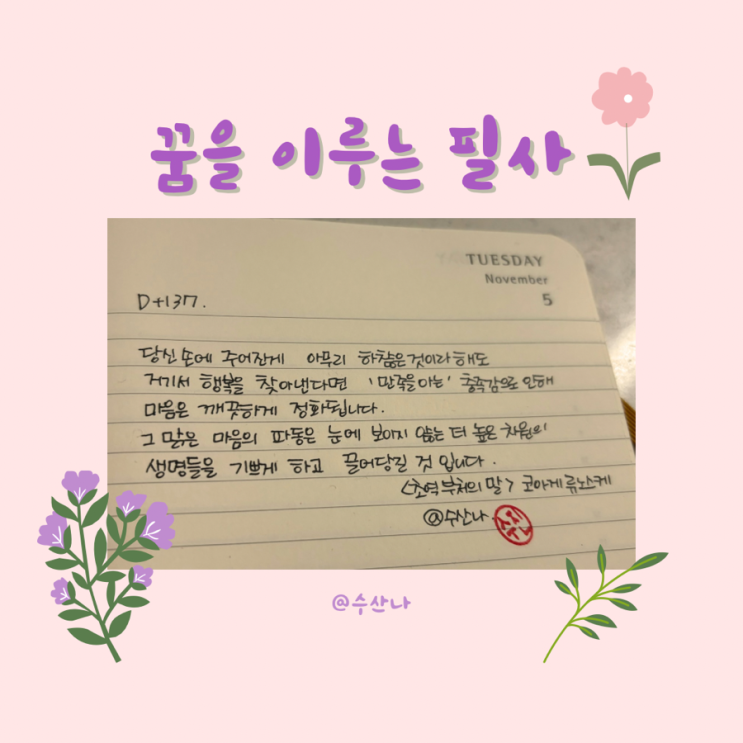 꿈을 이루는 필사
TUESDAY
November
5
D+137.
당신 손에 주어진게 아무리 하찮은것이라 해도
거기서 행복을 찾아낸다면 '만족을 아는' 충족감으로 인해
마음은 깨끗하게 정화됩니다.
그 맑은 마음의 파동은 눈에 보이지 않는 더 높은 차원의
생명들을 기쁘게 하고 끌어당길 것 입니다.
<초역 부처의 말> 코이케 류노스케
@수산나
@수산나